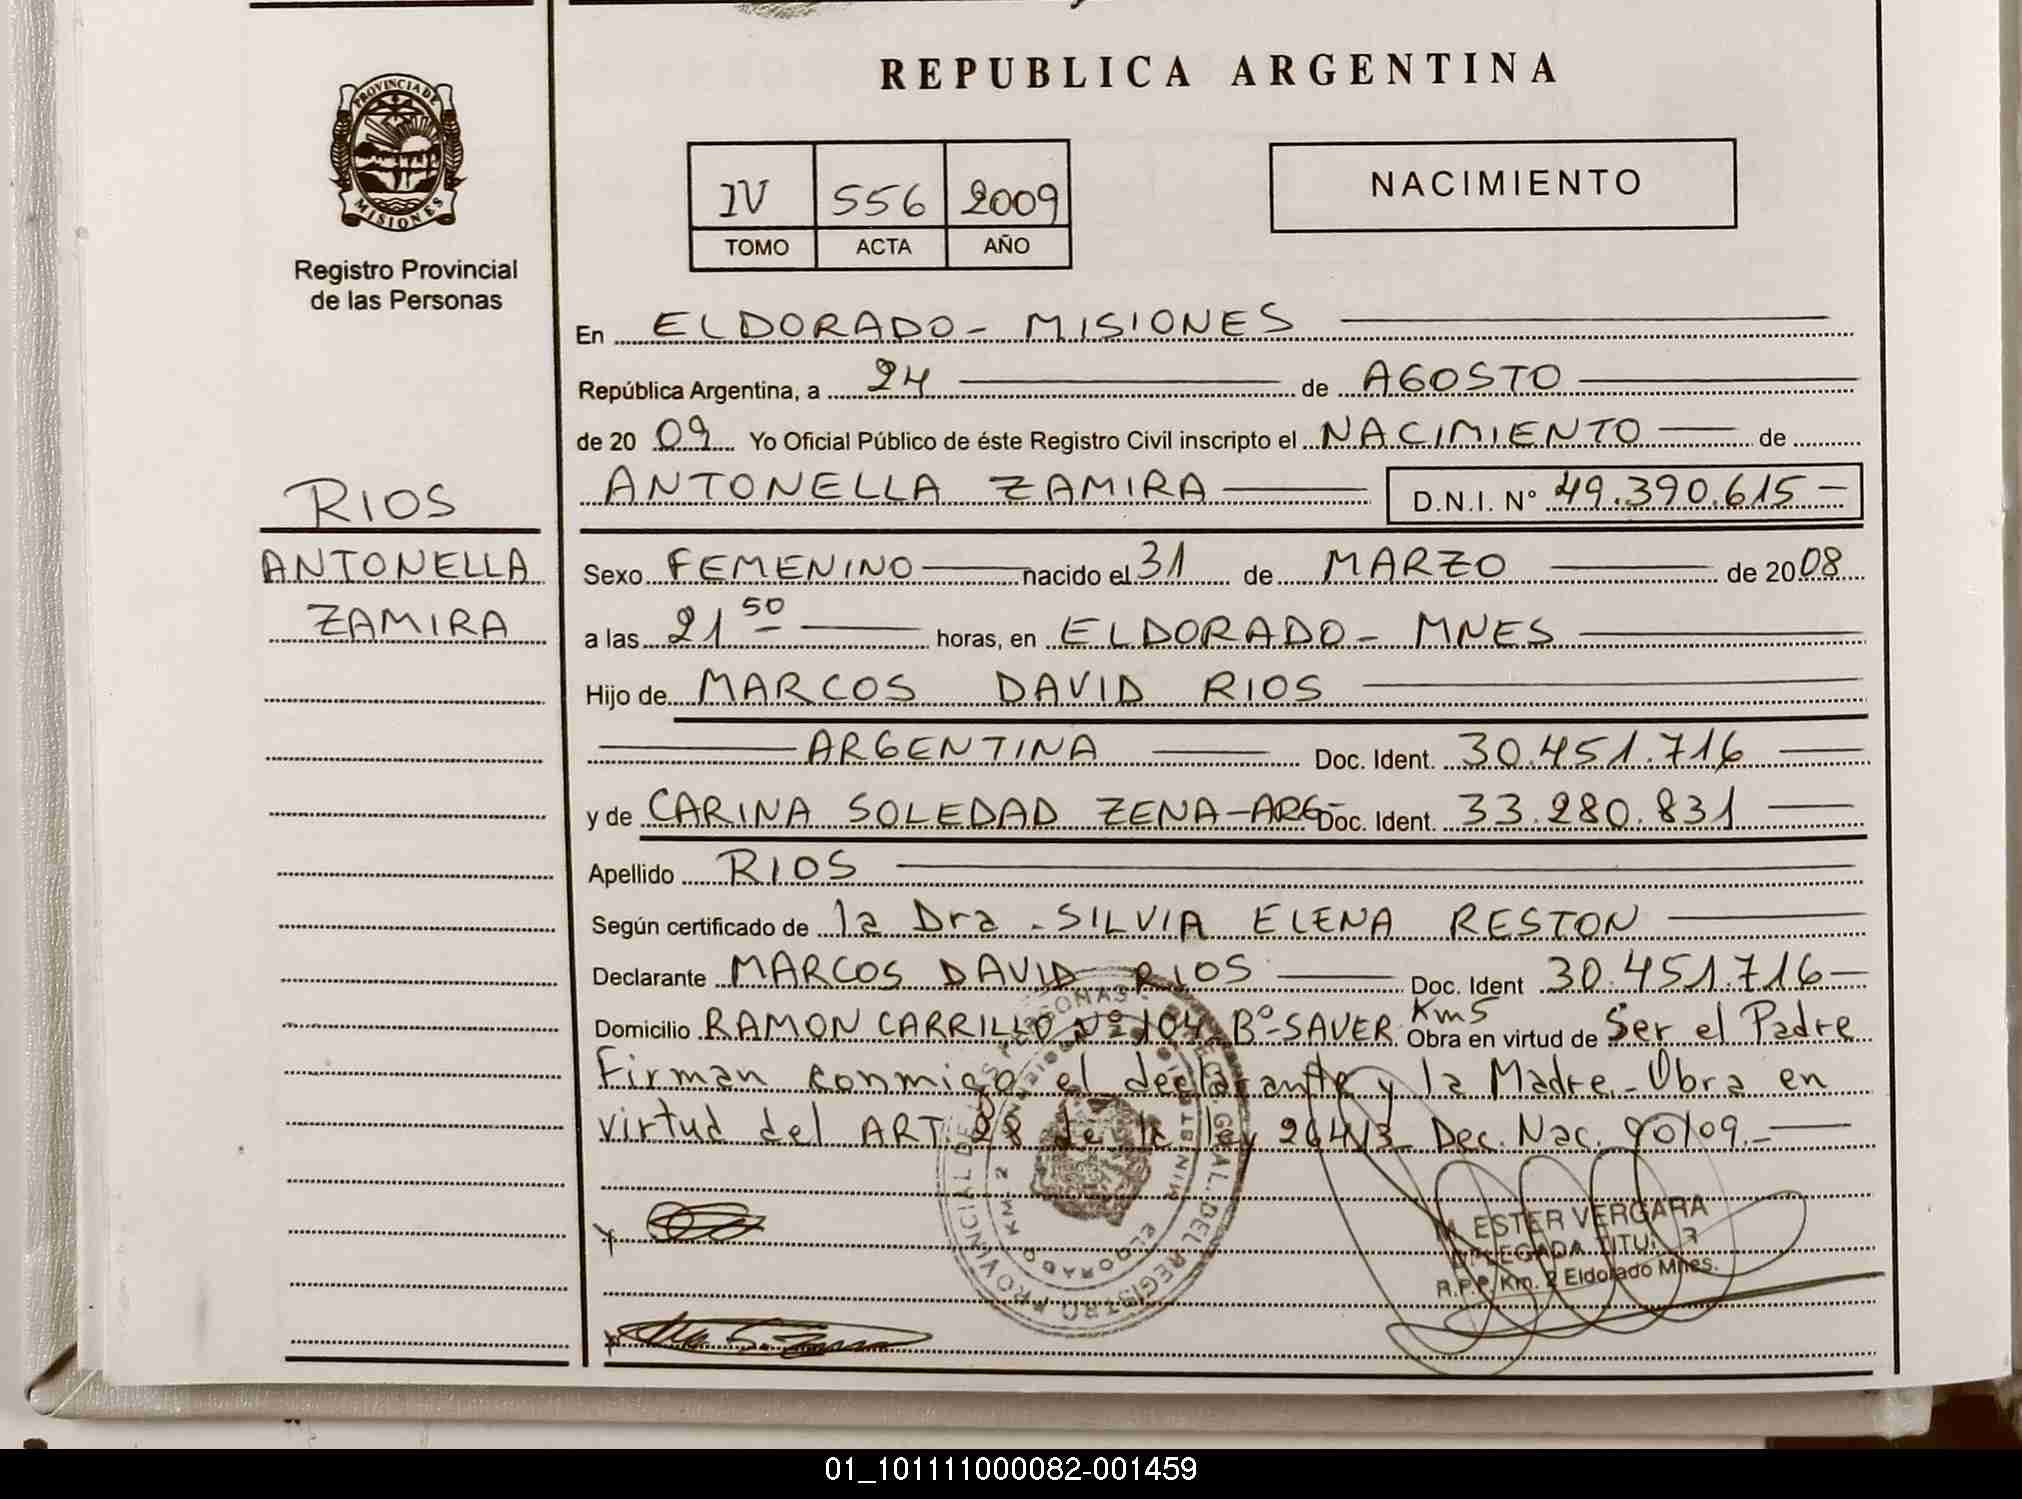 REPUBLICA ARGENTINA
PROVINCIA DE
MISIONES
Registro Provincial
de las Personas
IV 556 2009
TOMO ACTA AÑO
NACIMIENTO
En ELDORADO - MISIONES
República Argentina, a 24 de AGOSTO
de 20 09 Yo Oficial Público de éste Registro Civil inscripto el NACIMIENTO de
ANTONELLA ZAMIRA D.N.I. N° 49.390.615
RIOS
ANTONELLA
ZAMIRA
Sexo FEMENINO nacido el 31 de MARZO de 20 08
a las 21 50 horas, en ELDORADO - MNES
Hijo de MARCOS DAVID RIOS
ARGENTINA Doc. Ident. 30.451.716
y de CARINA SOLEDAD ZENA - ARG- Doc. Ident. 33.280.831
Apellido RIOS
Según certificado de la Dra. SILVIA ELENA RESTON
Declarante MARCOS DAVID RIOS Doc. Ident 30.451.716
Domicilio RAMON CARRILLO Nº 104 Bº- SAVER Km5 Obra en virtud de Ser el Padre
Firman conmigo el declarante y la Madre.- Obra en
virtud del ART. 28 de la ley 26413 Dec. Nac. 90/09.-
REGISTRO PROVINCIAL DE LAS PERSONAS
ELDORADO KM 2
M. ESTER VERGARA
DELEGADA TITULAR
R.P.P. Km. 2 Eldorado Mnes.
01_101111000082-001459